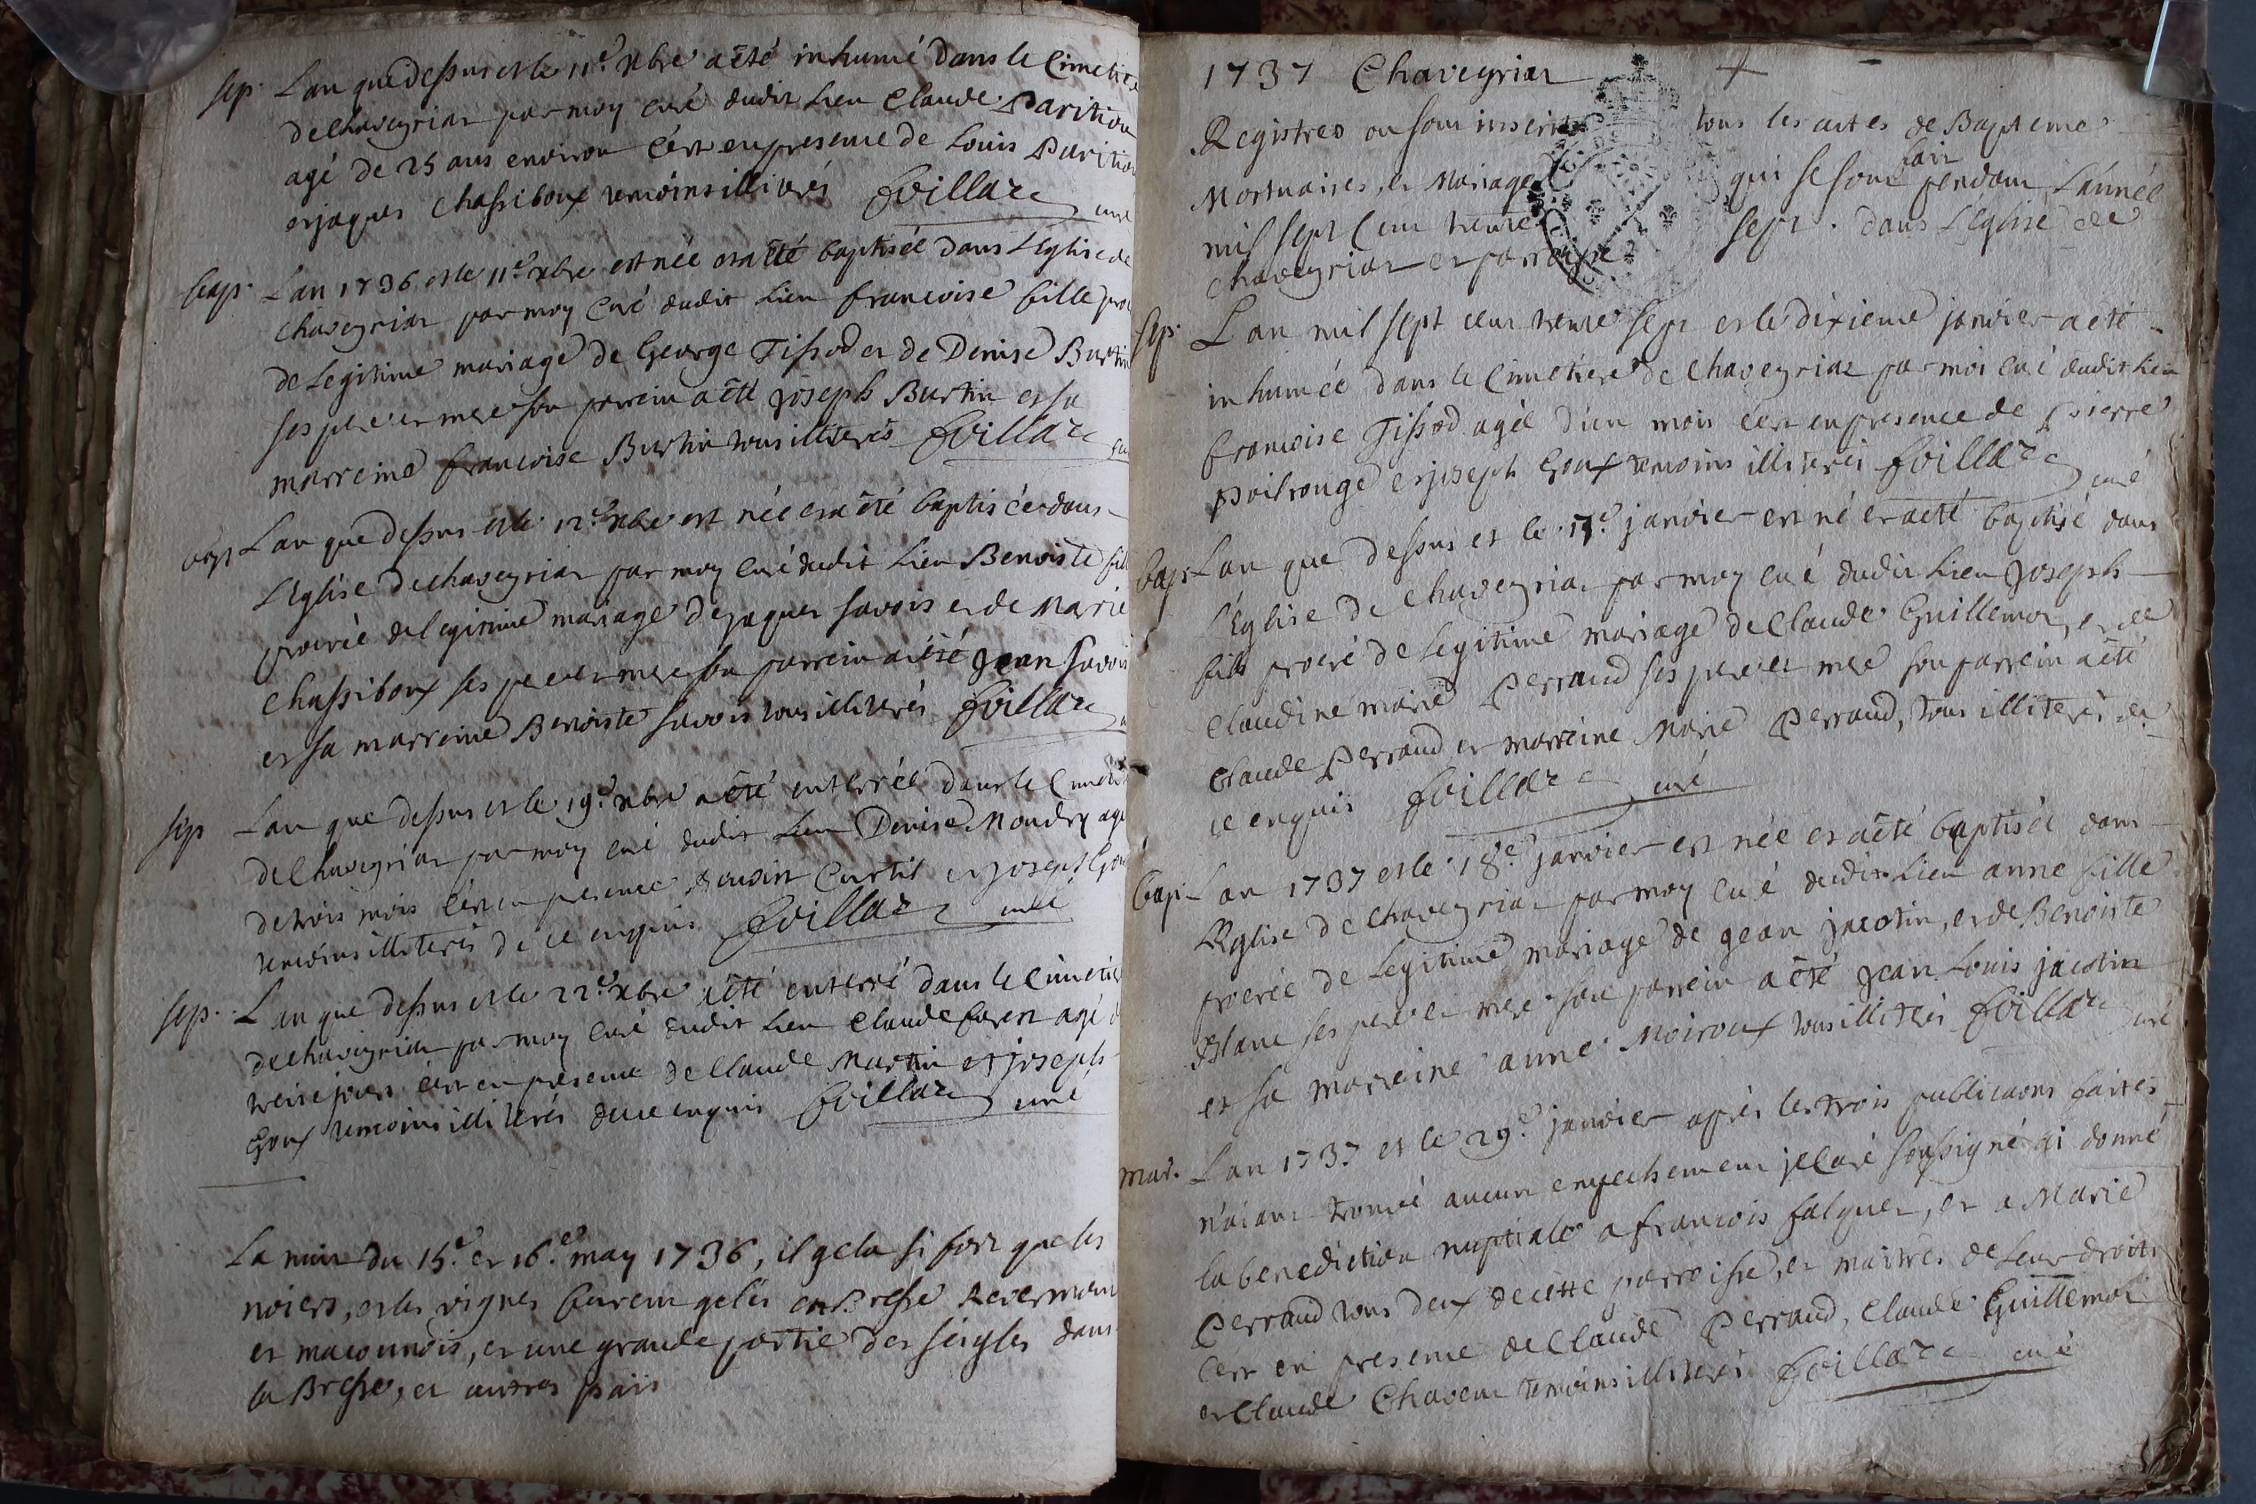 sep. L'an que dessus et le 11e xbre a été inhumé dans le Cimetiere
de chaveyriat par moy curé dudit Lieu Claude Parition
agé de 25 ans environ c'est en presence de Louis Parition
et jaques Chassiboux temoins illiterés foillaz curé
bap. L'an 1736 et le 11e xbre est née et a été baptisée dans l'Eglise de
chaveyriat par moy curé dudit Lieu francoise fille
de Legitime mariage de George Tissod et de Denise Burtin
ses pere et mere son parrein a été joseph Burtin et sa
marreine francoise Burtin tous illiterés foillaz
bap. L'an que dessus et le 12e xbre est née et a été baptisée dans
L'Eglise de chaveyriat par moy curé dudit Lieu Benoiste fille
procrée de legitime mariage de jaques Savois et de Marie
Chassiboux ses pere et mere son parrein a été jean Savois
et sa marreine Benoiste Savois tous illiterés foillaz
sep L'an que dessus et le 19e xbre a été enterrée dans le Cimetiere
de Chaveyriat par moy curé dudit Lieu Denise Moudry agée
de trois mois c'est en presence Curtil et joseph Goux
temoins illiterés de ce enquis foillaz curé
sep. L'an que dessus et le 22e xbre a été enterré dans le Cimetiere
de chaveyriat par moy curé dudit Lieu Claude forest agé de
treize jours c'est en presence de Claude Martin et joseph
Goux temoins illiterés de ce enquis foillaz curé
La nuit du 15e et 16e may 1736, il gela si fort que les
noiers, et les vignes furent gelés en Bresse Revermont
et maconnois, et une grande partie des seigles dans
la Bresse, et autres païs
1737 Chaveyriat
Registres ou sont inserits tous les actes de Bapteme
Mortuaires, et Mariage qui se sont fait pendant L'année
mil sept cent trente sept. dans L'Eglise de
chaveyriat et parroisse
sep. L'an mil sept cent trente sept et le dixieme janvier a eté
inhumée dans le Cimetiere de Chaveyriat par moi curé dudit Lieu
francoise Tissod agée d'un mois c'est en presence de pierre
poilrouge et joseph Goux temoins illiterés foillaz curé
bap. L'an que dessus et le 17e janvier est né et a eté baptisé dans
l'Eglise de Chaveyriat par moy curé dudit Lieu joseph
fils procré de Legitime mariage de Claude Guillemot, et de
Claudine marie Perraud ses pere et mere son parrein a été
Claude Perraud et marreine Marie Perraud, tous illiterés de
ce enquis foillaz curé
bap. L'an 1737 et le 18e janvier est née et a été baptisée dans
L'Eglise de Chaveyriat par moy curé dudit Lieu anne fille
procrée de Legitime mariage de jean jacotin, et de Benoiste
Blanc ses pere et mere son parrein a été jean Louis jacotin
et sa marreine anne Moiroux tous illiterés foillaz curé
mar. L'an 1737 et le 29e janvier après les trois publicaons faites
n'aiant trouvé aucun empechement je curé soussigné ai donné
la benediction nuptiale a francois falquet, et a Marie
Perraud tous deux de cette parroisse, et maitres de Leur droits
c'est en presence de Claude Perraud, Claude Guillemot
et Claude Chavent temoins illiterés foillaz curé